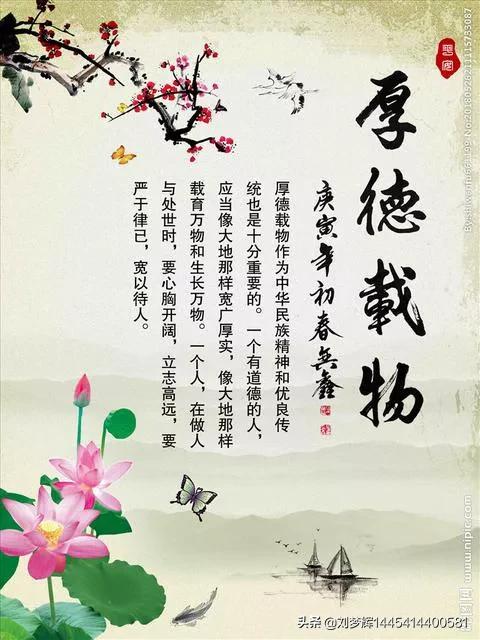 厚德載物
庚寅年初春兵鑫
厚德载物作为中华民族精神和优良传
统也是十分重要的。一个有道德的人，
应当像大地那样宽广厚实，像大地那样
载育万物和生长万物。一个人，在做人
与处世时，要心胸开阔，立志高远，要
严于律已，宽以待人。
www.nipic.com
头条 @刘梦辉1445414400581